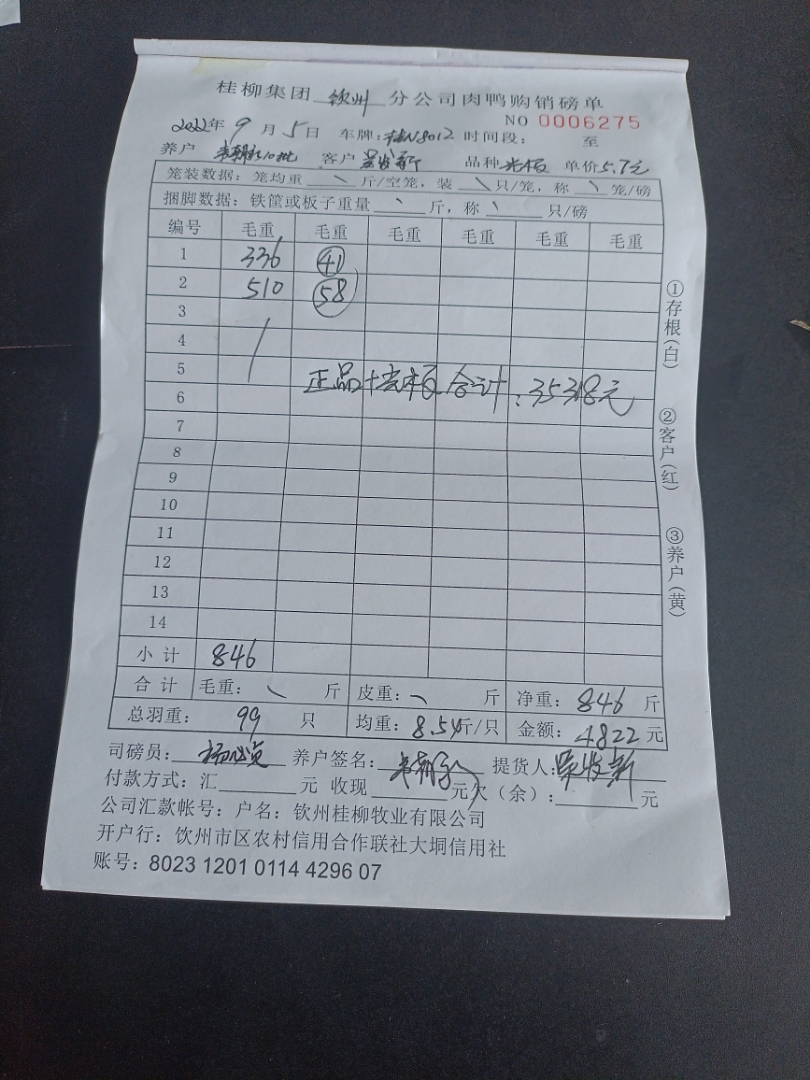 桂柳集团 钦州 分公司肉鸭购销磅单
NO 0006275
2022年 9 月 5 日 车牌: 8012 时间段: 至
养户 客户 品种 单价 5.7元
笼装数据: 笼均重 \ 斤/空笼, 装 \ 只/笼, 称 \ 笼/磅
捆脚数据: 铁筐或板子重量 \ 斤, 称 \ 只/磅
编号 毛重 毛重 毛重 毛重 毛重 毛重
1 336 41
2 510 58
3
4
5
正品 合计: 35318元
6
7
8
9
10
11
12
13
14
小计 846
合计 毛重: \ 斤 皮重: \ 斤 净重: 846 斤
总羽重: 99 只 均重: 8.54斤/只 金额: 4822 元
司磅员: 养户签名: 提货人:
付款方式: 汇 元 收现 元欠(余): 元
公司汇款帐号: 户名: 钦州桂柳牧业有限公司
开户行: 饮州市区农村信用合作联社大垌信用社
账号: 8023 1201 0114 4296 07
①存根(白)
②客户(红)
③养户(黄)